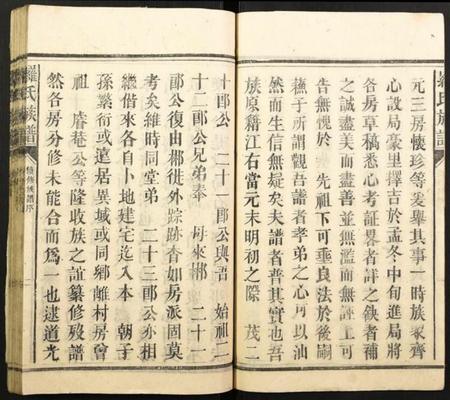 羅氏族譜
元三房懷珍等爰舉其事一時族衆齊
心設局豪里擇吉於孟冬中旬進局將
各房草稿悉心考証畧者詳之缺者補
之誠盡美而盡善並無濫而無誣上可
告無愧於 先祖下可垂良法於後嗣
蕪于所謂觀吾譜者孝弟之心可以油
然而生信無疑矣夫譜者普其實也吾
族原籍江右當元末明初之際 茂二
十郎公 二十一郎公與吾 始祖二
十二郎公兄弟奉 母來郴 二十一
郎公復由郴徙外踪跡杳如房派固莫
考矣維時同堂弟 二十三郎公亦相
繼偕來各自卜地建宅迄入本 朝子
孫繁衍或遠居異域或同鄉離村房曾
祖 睿菴公等隆收族之誼纂修殁譜
然各房分修未能合而爲一也逮道光
羅氏族譜
族譜序
二